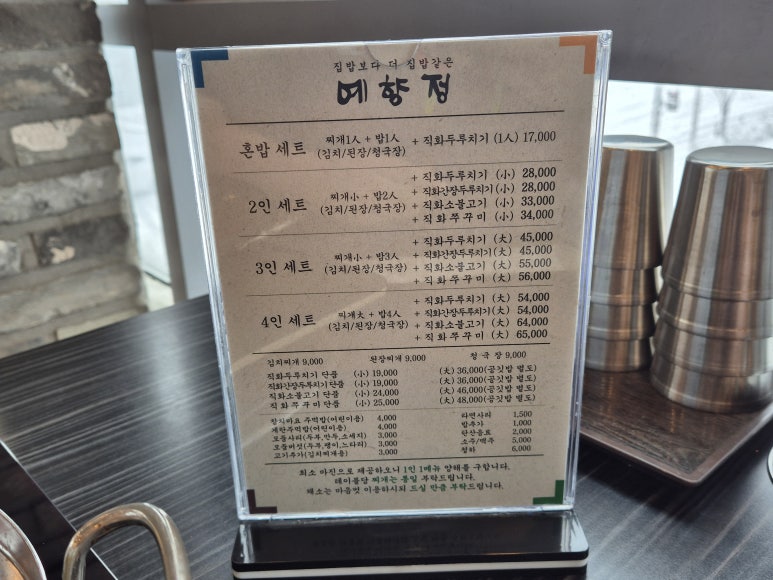 집밥보다 더 집밥같은
예향정
혼밥 세트 찌개1人 + 밥1人 (김치/된장/청국장) + 직화두루치기 (1人) 17,000
2인 세트 찌개小 + 밥2人 (김치/된장/청국장)
+ 직화두루치기 (小) 28,000
+ 직화간장두루치기 (小) 28,000
+ 직화소불고기 (小) 33,000
+ 직화쭈꾸미 (小) 34,000
3인 세트 찌개小 + 밥3人 (김치/된장/청국장)
+ 직화두루치기 (大) 45,000
+ 직화간장두루치기 (大) 45,000
+ 직화소불고기 (大) 55,000
+ 직화쭈꾸미 (大) 56,000
4인 세트 찌개大 + 밥4人 (김치/된장/청국장)
+ 직화두루치기 (大) 54,000
+ 직화간장두루치기 (大) 54,000
+ 직화소불고기 (大) 64,000
+ 직화쭈꾸미 (大) 65,000
김치찌개 9,000 된장찌개 9,000 청국장 9,000
직화두루치기 단품 (小) 19,000 (大) 36,000(공깃밥 별도)
직화간장두루치기 단품 (小) 19,000 (大) 36,000(공깃밥 별도)
직화소불고기 단품 (小) 24,000 (大) 46,000(공깃밥 별도)
직화쭈꾸미 단품 (小) 25,000 (大) 48,000(공깃밥 별도)
참치마요 주먹밥(어린이용) 4,000 라면사리 1,500
계란주먹밥(어린이용) 4,000 밥추가 1,000
모듬사리(두부,만두,소세지) 3,000 탄산음료 2,000
모듬버섯(두부,팽이,느타리) 3,000 소주/맥주 5,000
고기추가(김치찌개용) 3,000 청하 6,000
최소 마진으로 제공하오니 1인 1메뉴 양해를 구합니다.
테이블당 찌개는 통일 부탁드립니다.
채소는 마음껏 이용하시되 드실 만큼 부탁드립니다.